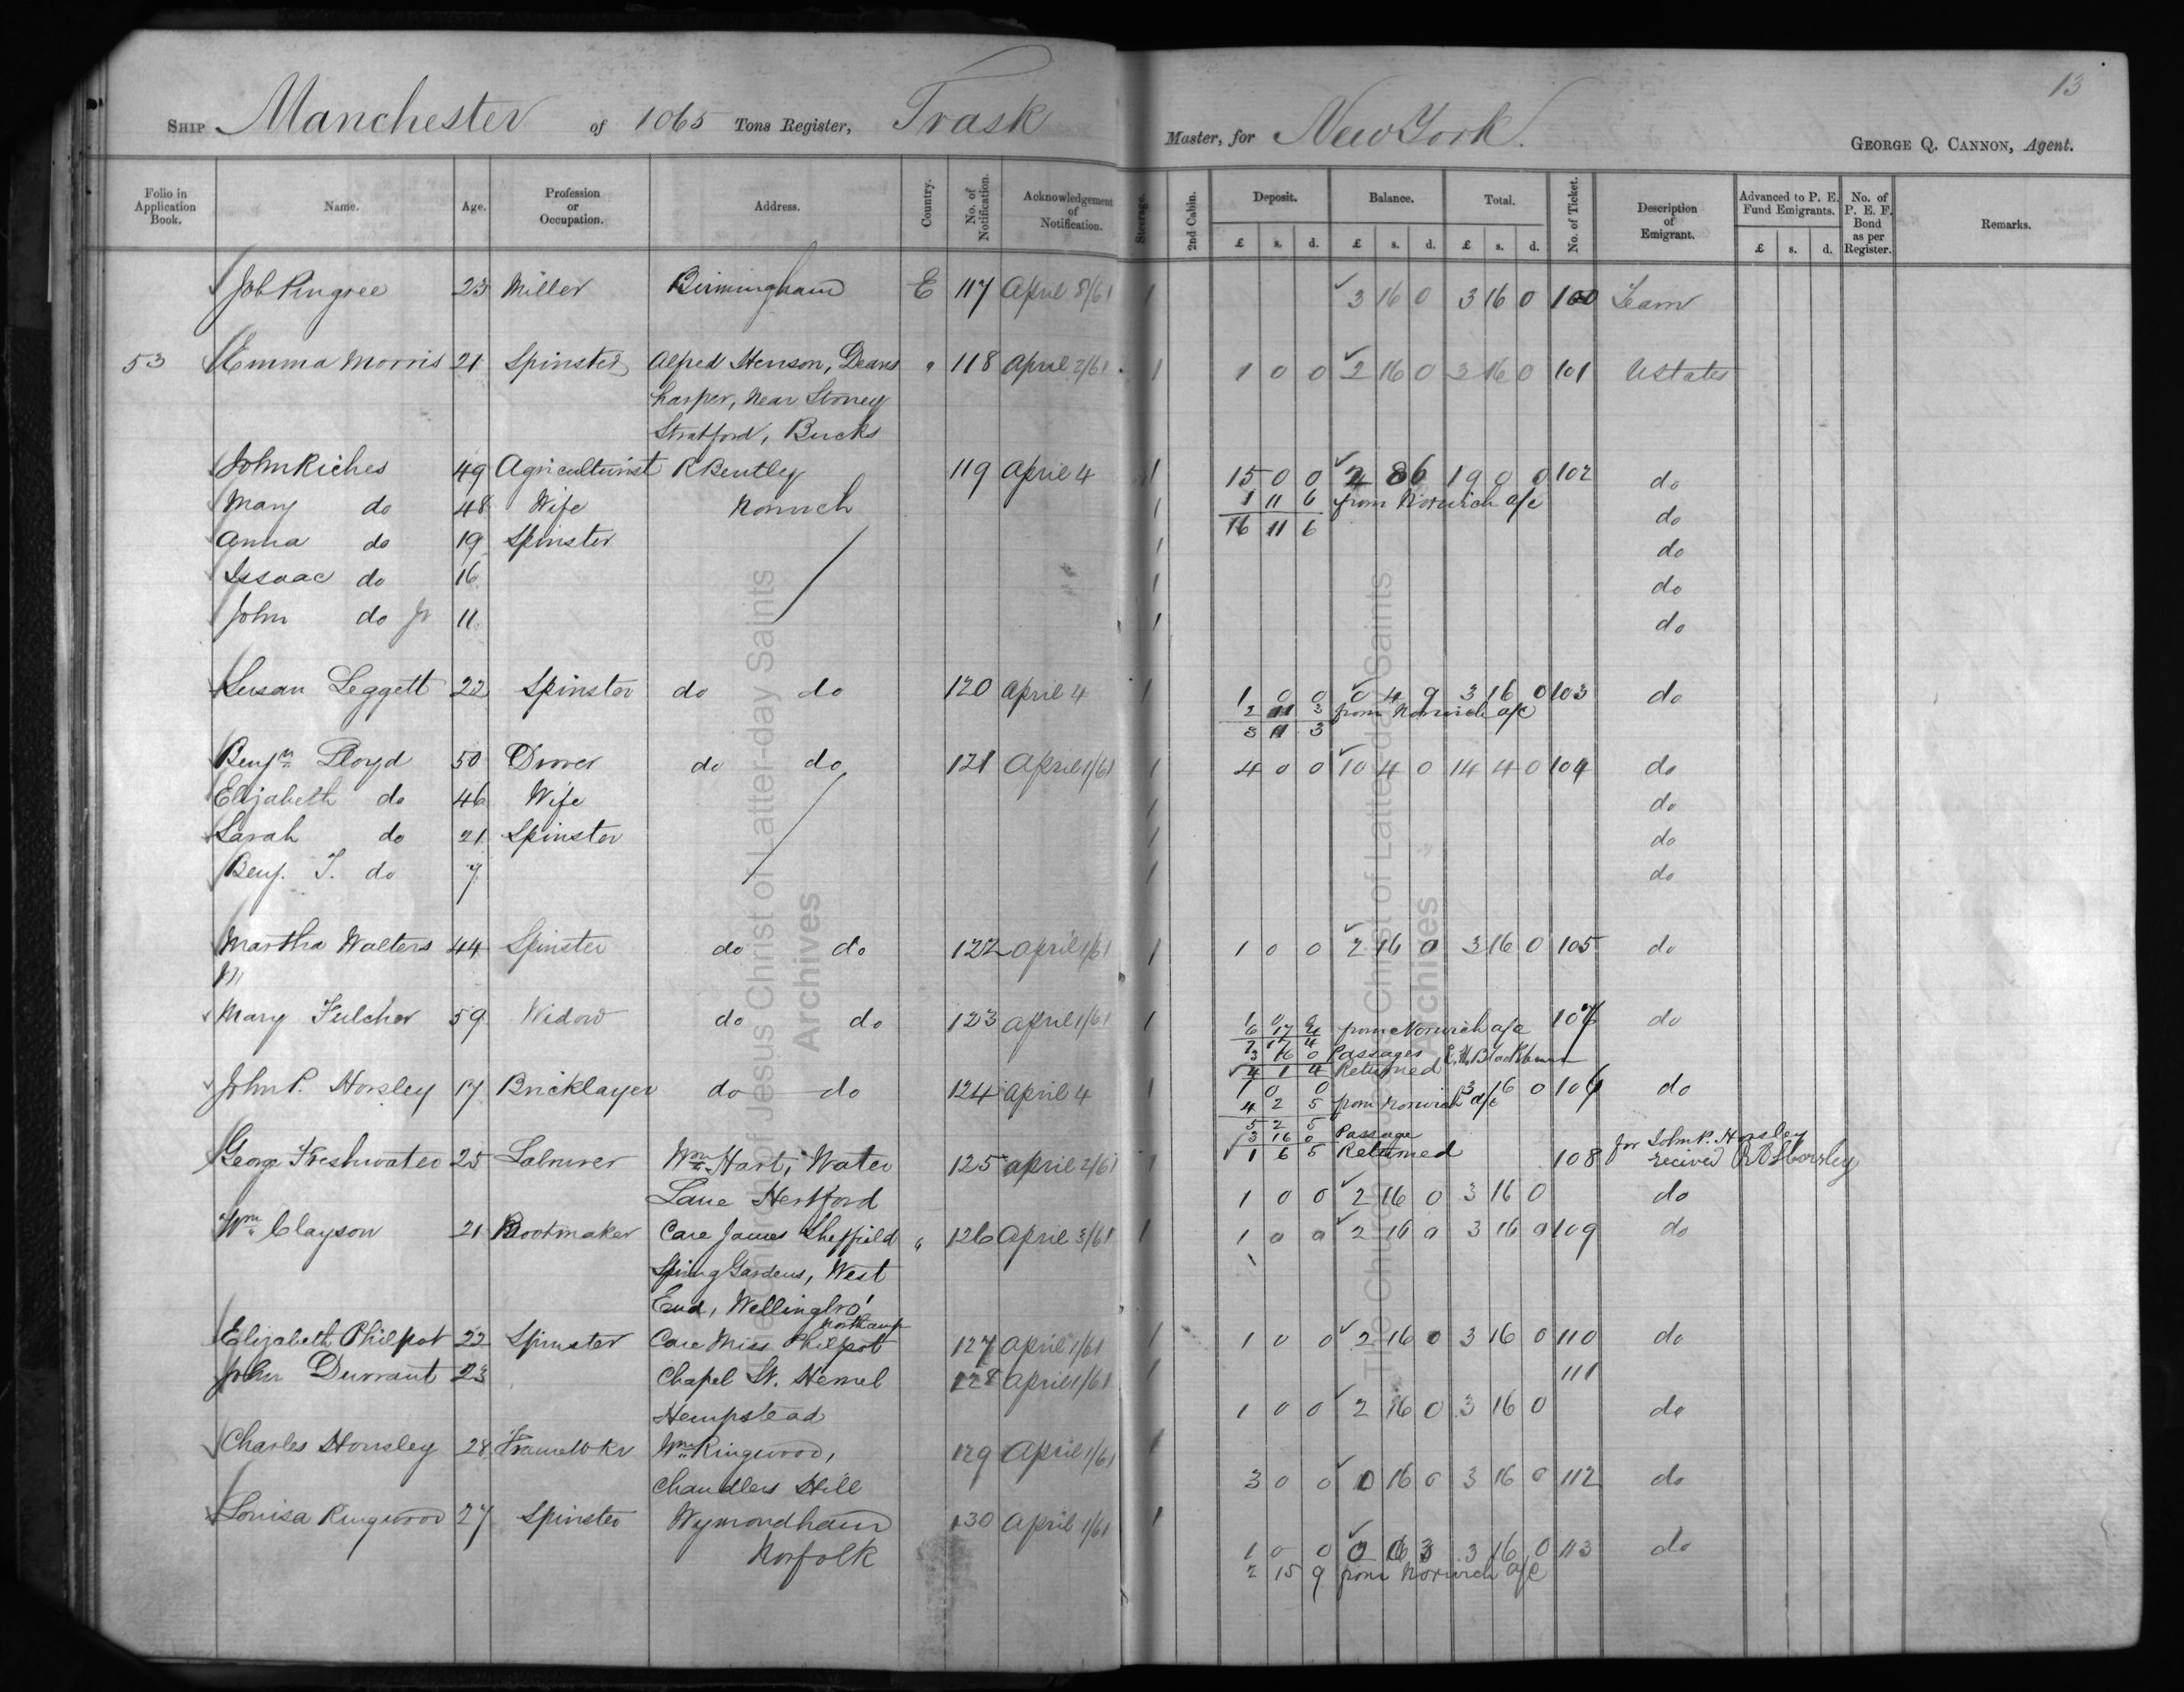 13
SHIP Manchester of 1065 Tons Register, Trask Master, for New York.
GEORGE Q. CANNON, Agent.
Folio in Application Book. Name. Age. Profession or Occupation. Address. Country. No. of Notification. Acknowledgement of Notification. Steerage. 2nd Cabin. Deposit. Balance. Total. No. of Ticket. Description of Emigrant. Advanced to P. E. Fund Emigrants. No. of P. E. F. Bond as per Register. Remarks.
£ s. d. £ s. d. £ s. d. £ s. d.
Job Pingree 23 Miller Birmingham E 117 April 8/61 1 3 16 0 3 16 0 100 Team
53 Emma Morris 21 Spinster Alfred Henson, Deans " 118 April 2/61 1 1 0 0 2 16 0 3 16 0 101 U States
near Stoney
Stratford, Bucks
John Riches 49 Agriculturist R Bentley 119 April 4 1 15 0 0 2 8 6 19 0 0 102 do
Mary do 48 Wife Norwich 1 1 11 6 from Norwich a/c do
16 11 6
Anna do 19 Spinster 1 do
Issaac do 16 1 do
John do Jr 11 1 do
Susan Leggett 22 Spinster do do 120 April 4 1 1 0 0 0 4 9 3 16 0 103 do
2 11 3 from Norwich a/c
3 11 3
Benjn Lloyd 50 Drover do do 121 April 1/61 1 4 0 0 10 4 0 14 4 0 104 do
Elizabeth do 46 Wife 1 do
Sarah do 21 Spinster 1 do
Benj. T. do 7 1 do
Martha Walters 44 Spinster do do 122 April 1/61 1 1 0 0 2 16 0 3 16 0 105 do
M
Mary Fulcher 59 Widow do do 123 April 1/61 1 1 0 0 do
6 17 4 from Norwich a/c
7 17 4
3 16 0 Passages
4 1 4 Returned
John P. Horsley 17 Bricklayer do do 124 April 4 1 1 0 0 3 16 0 106 do
4 2 5 from Norwich a/c
5 2 5
3 16 0 Passage
1 6 5 Returned for John P. Horsley
George Freshwater 25 Labourer Wm Hart, Water 125 April 2/61 1 108 recived
Lane Hertford 1 0 0 2 16 0 3 16 0 do
Wm Clayson 21 Bootmaker Care James Sheffield " 126 April 3/61 1 1 0 0 2 16 0 3 16 0 109 do
Spring Gardens, West
End, Wellingbro'
Northamp
Elizabeth Philpot 22 Spinster Care Miss Philpot 127 April 1/61 1 1 0 0 2 16 0 3 16 0 110 do
John Durrant 23 Chapel St. Hemel 128 April 1/61 1 111
Hempstead 1 0 0 2 16 0 3 16 0 do
Charles Horsley 28 Framewkr Wm Ringwood, 129 April 1/61 1
Chandlers Hill 3 0 0 0 16 0 3 16 0 112 do
Louisa Ringwood 27 Spinster Wymondham 130 April 1/61 1
Norfolk 1 0 0 0 0 3 3 16 0 113 do
2 15 9 from Norwich a/c
The Church of Jesus Christ of Latter-day Saints
Archives
The Church of Jesus Christ of Latter-day Saints
Archives